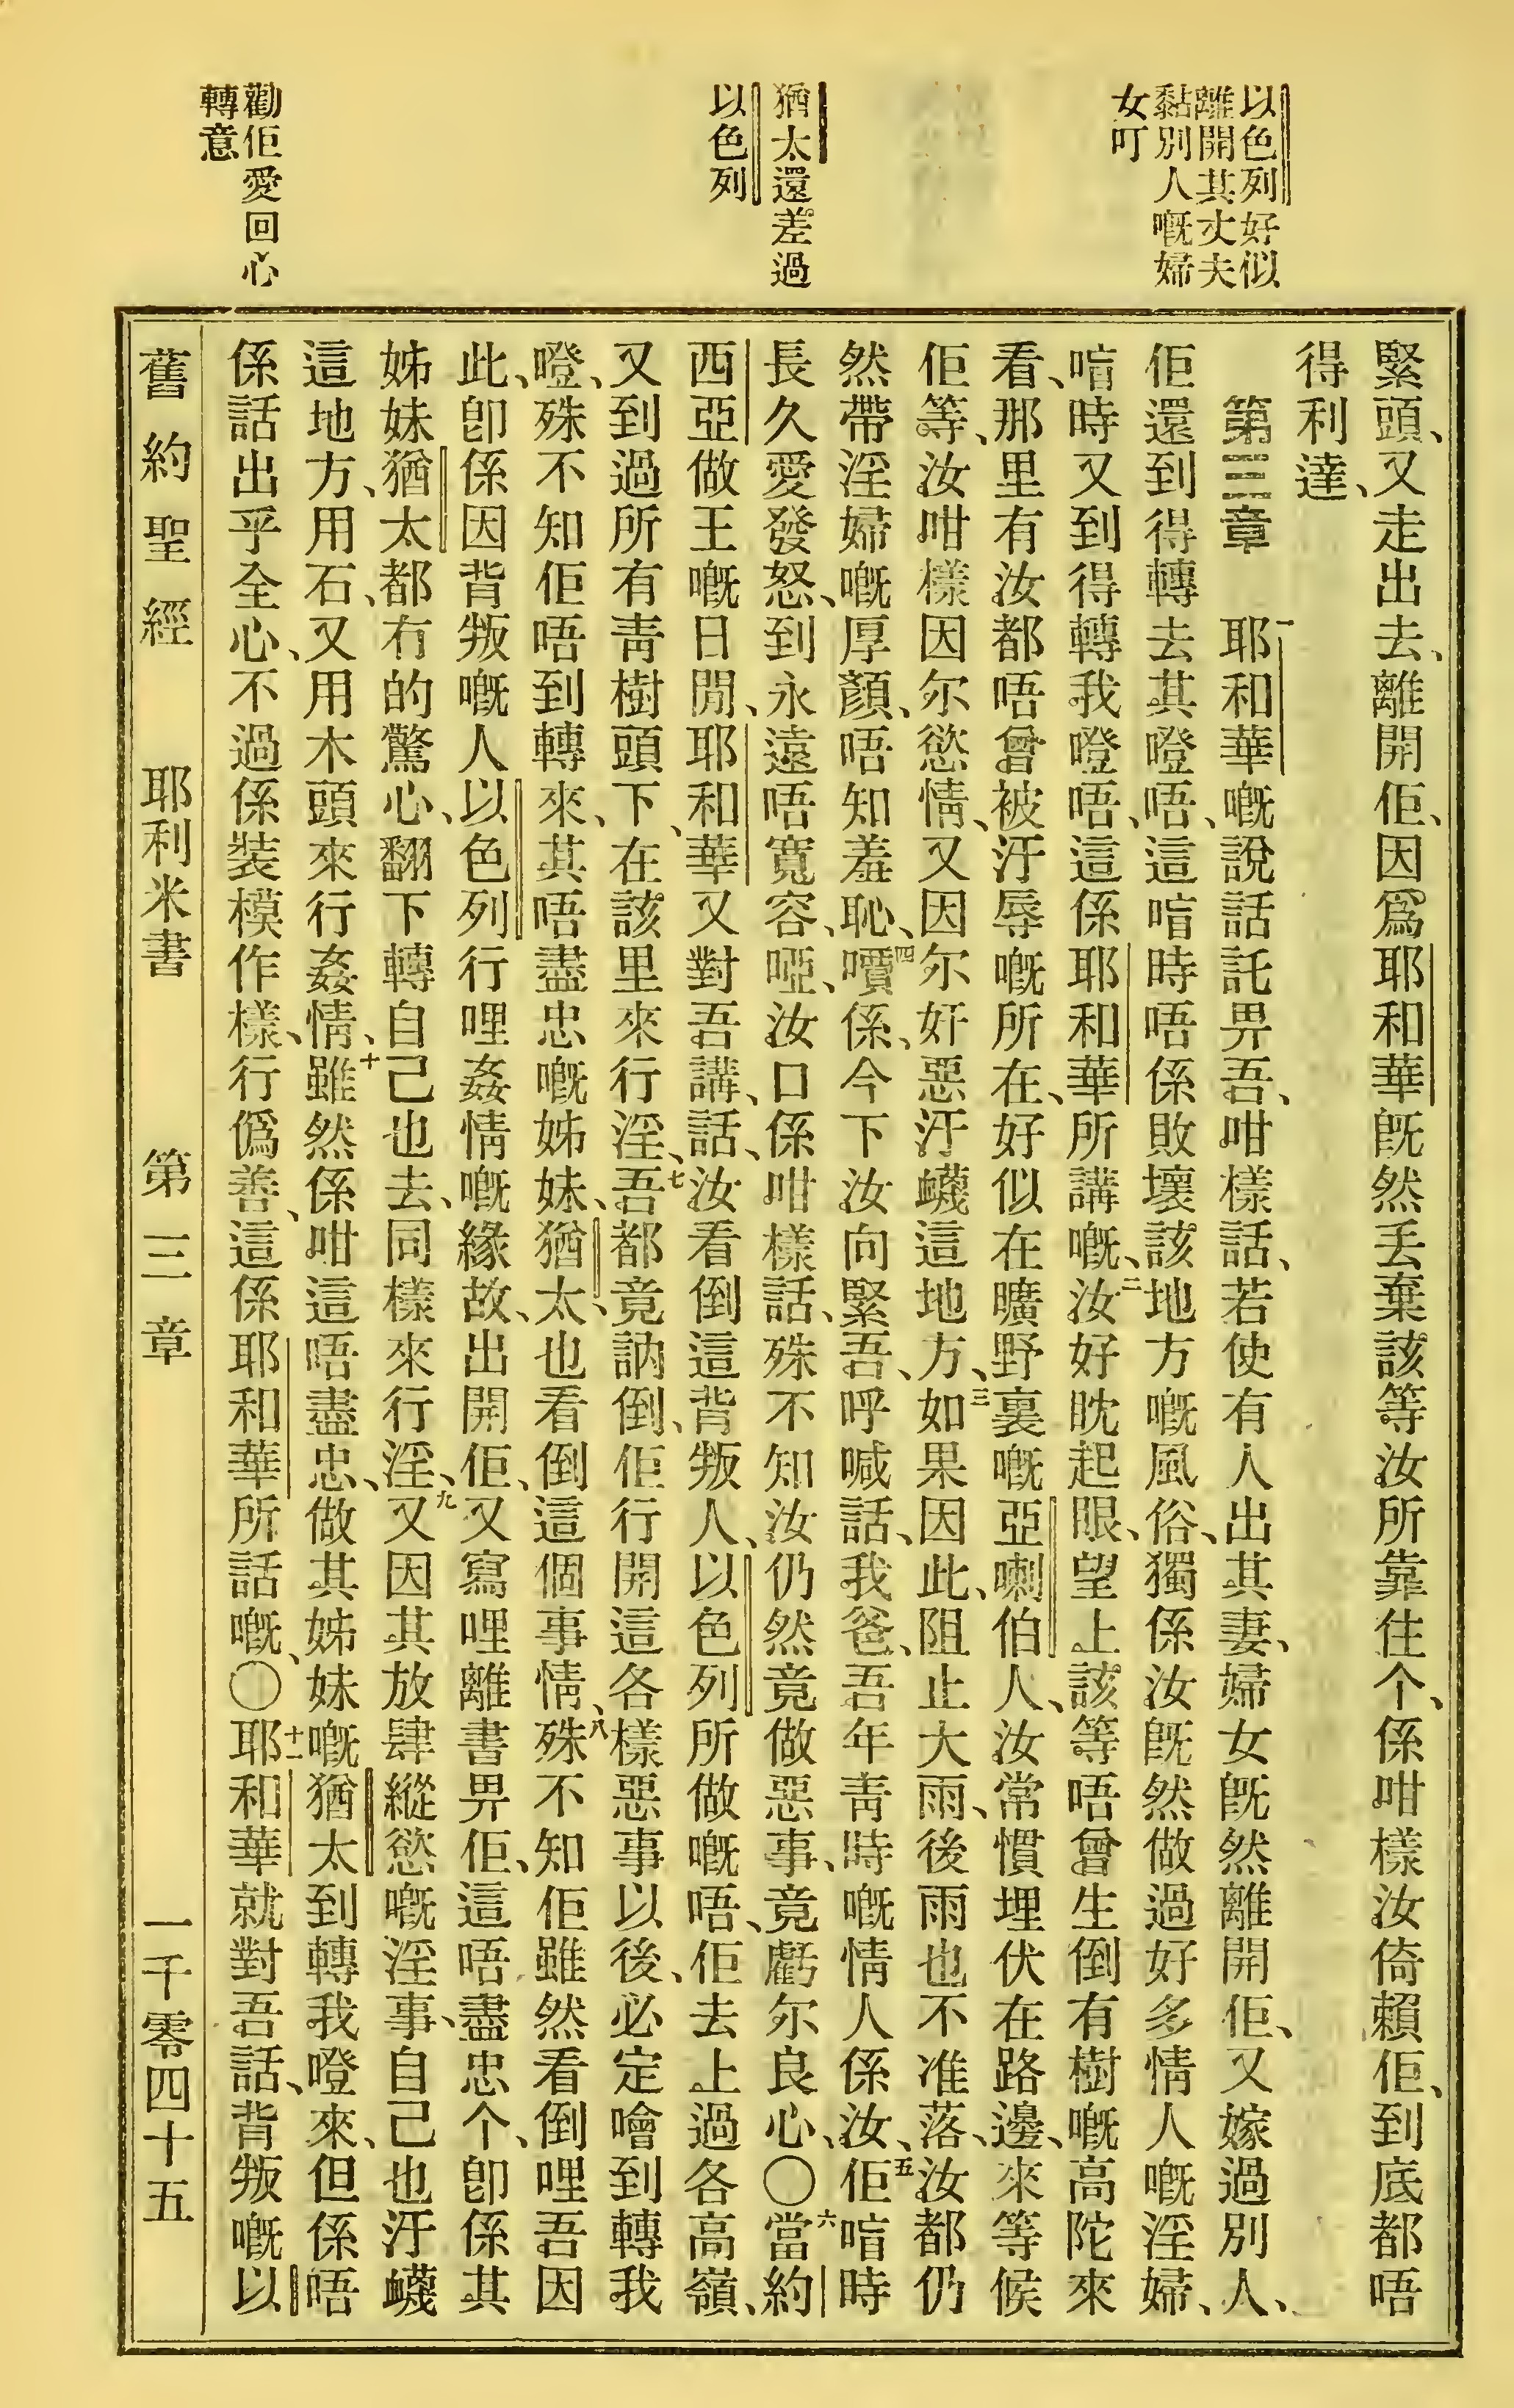 以色列好似
離開其丈夫
黏別人嘅婦
女叮
猶太還差過
以色列
勸佢愛回心
轉意
緊頭、又走出去、離開佢、因爲耶和華既然丢棄該等汝所靠住个、係咁樣汝倚賴佢、到底都唔
得利達、
第三章　一耶和華嘅說話託畀吾、咁樣話、若使有人出其妻、婦女既然離開佢、又嫁過別人、
佢還到得轉去其嶝唔、這喑時唔係敗壞該地方嘅風俗、獨係汝既然做過好多情人嘅淫婦、
喑時又到得轉我嶝唔、這係耶和華所講嘅、二汝好眈起眼、望上該等唔曾生倒有樹嘅高陀來
看、那里有汝都唔曾被汙辱嘅所在、好似在曠野裏嘅亞喇伯人、汝常慣埋伏在路邊、來等候
佢等、汝咁樣因尔慾情、又因尔奸惡汙衊這地方、三如果因此、阻止大雨、後雨也不准落、汝都仍
然帶淫婦嘅厚顏、唔知羞恥、四嚽係、今下汝向緊吾、呼喊話、我爸、吾年靑時嘅情人係汝、五佢喑時
長久愛發怒、到永遠唔寬容、啞、汝口係咁樣話、殊不知汝仍然竟做惡事、竟虧尔良心、〇六當約
西亞做王嘅日閒、耶和華又對吾講、話、汝看倒這背叛人、以色列所做嘅唔、佢去上過各高嶺、
又到過所有靑樹頭下、在該里來行淫、七吾都竟訥倒、佢行開這各樣惡事以後、必定噲到轉我
嶝、殊不知佢唔到轉來、其唔盡忠嘅姊妹、猶太、也看倒這個事情、八殊不知佢雖然看倒哩吾因
此、卽係因背叛嘅人以色列行哩姦情嘅緣故、出開佢、又寫哩離書畀佢、這唔盡忠个、卽係其
姊妹猶太都冇的驚心、翻下轉自己也去、同樣來行淫、九又因其放肆縱慾嘅淫事、自己也汙衊
這地方、用石、又用木頭來行姦情、十雖然係咁這唔盡忠、做其姊妹嘅猶太到轉我嶝來、但係唔
係話出乎全心、不過係裝模作樣、行僞善、這係耶和華所話嘅、〇十一耶和華就對吾話、背叛嘅以
舊約聖經　耶利米書　第三章　一千零四十五